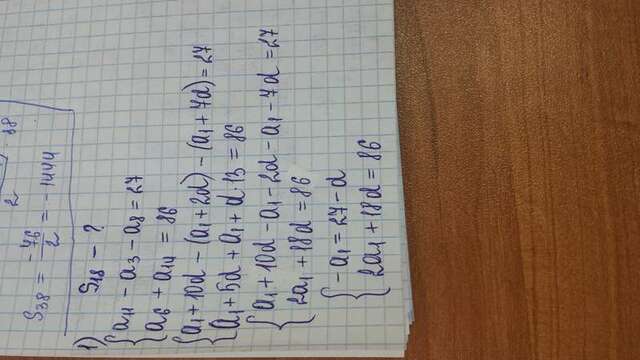 2 · 38
S₃₈ = -76/2 = -1444
1) S₁₈ - ?
{ a₁₁ - a₃ - a₈ = 27
{ a₆ + a₁₄ = 86
{ a₁ + 10d - (a₁ + 2d) - (a₁ + 7d) = 27
{ a₁ + 5d + a₁ + d·13 = 86
{ a₁ + 10d - a₁ - 2d - a₁ - 7d = 27
{ 2a₁ + 18d = 86
{ -a₁ = 27 - d
{ 2a₁ + 18d = 86